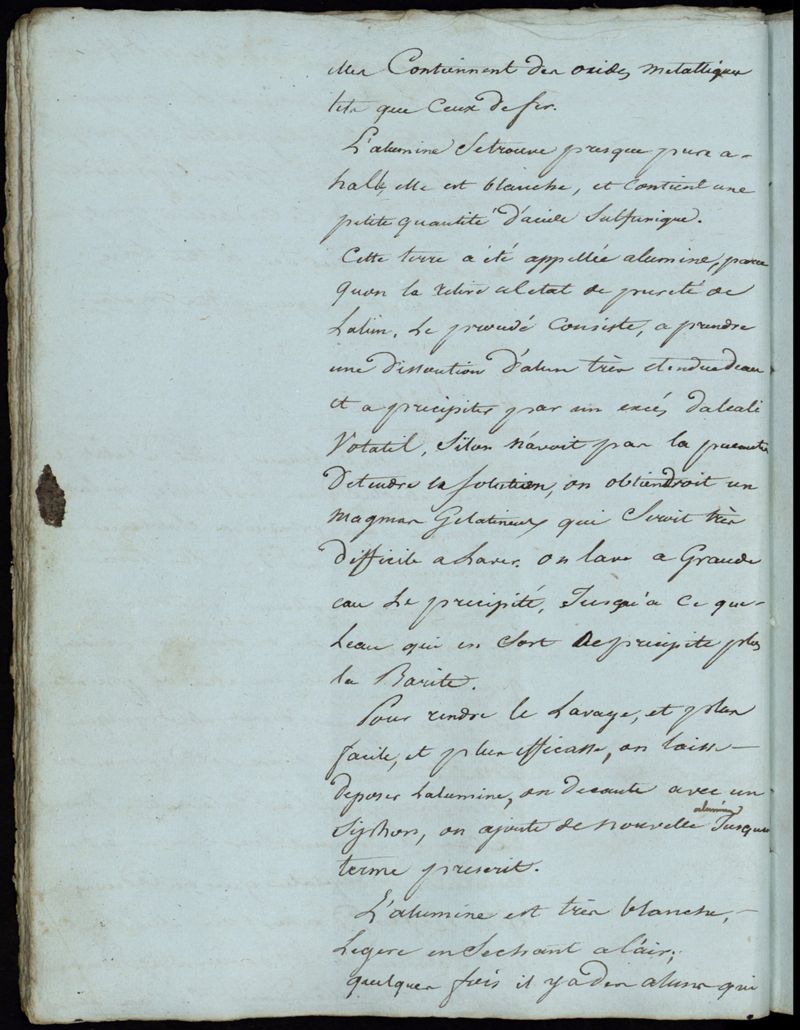 elles Contiennent des oxides metalliques
tels que Ceux de fer.
L'alumine Setrouve presque pure a-
hall, elle est blanche, et Contient une
petite quantité d'acide Sulfurique.
Cette terre a été appellée alumine, parce
quon la retire aletat de pureté de
Lalun. Le procedé Consiste, a prendre
une dissolution d'alun très etendue deau
et a precipiter par un excés dalcali
Volatil, Silon n'avoit pas la precaution
detendre la solution, on obtiendroit un
magmas Gelatineux qui Seroit très
difficile a Laver. on lave a Grande
eau Le precipité, Jusqu'a Ce que-
Leau qui en Sort ne precipite plus
la Barite.
Pour rendre le Lavage, et plus
facile, et plus efficasse, on laisse-
deposer Lalumine, on decante avec un
Siphon, on ajoute de nouvelle Jusquau
terme prescrit.
L'alumine est très blanche,-
Legere en Sechant a l'air;
quelques fois il y a des aluns qui